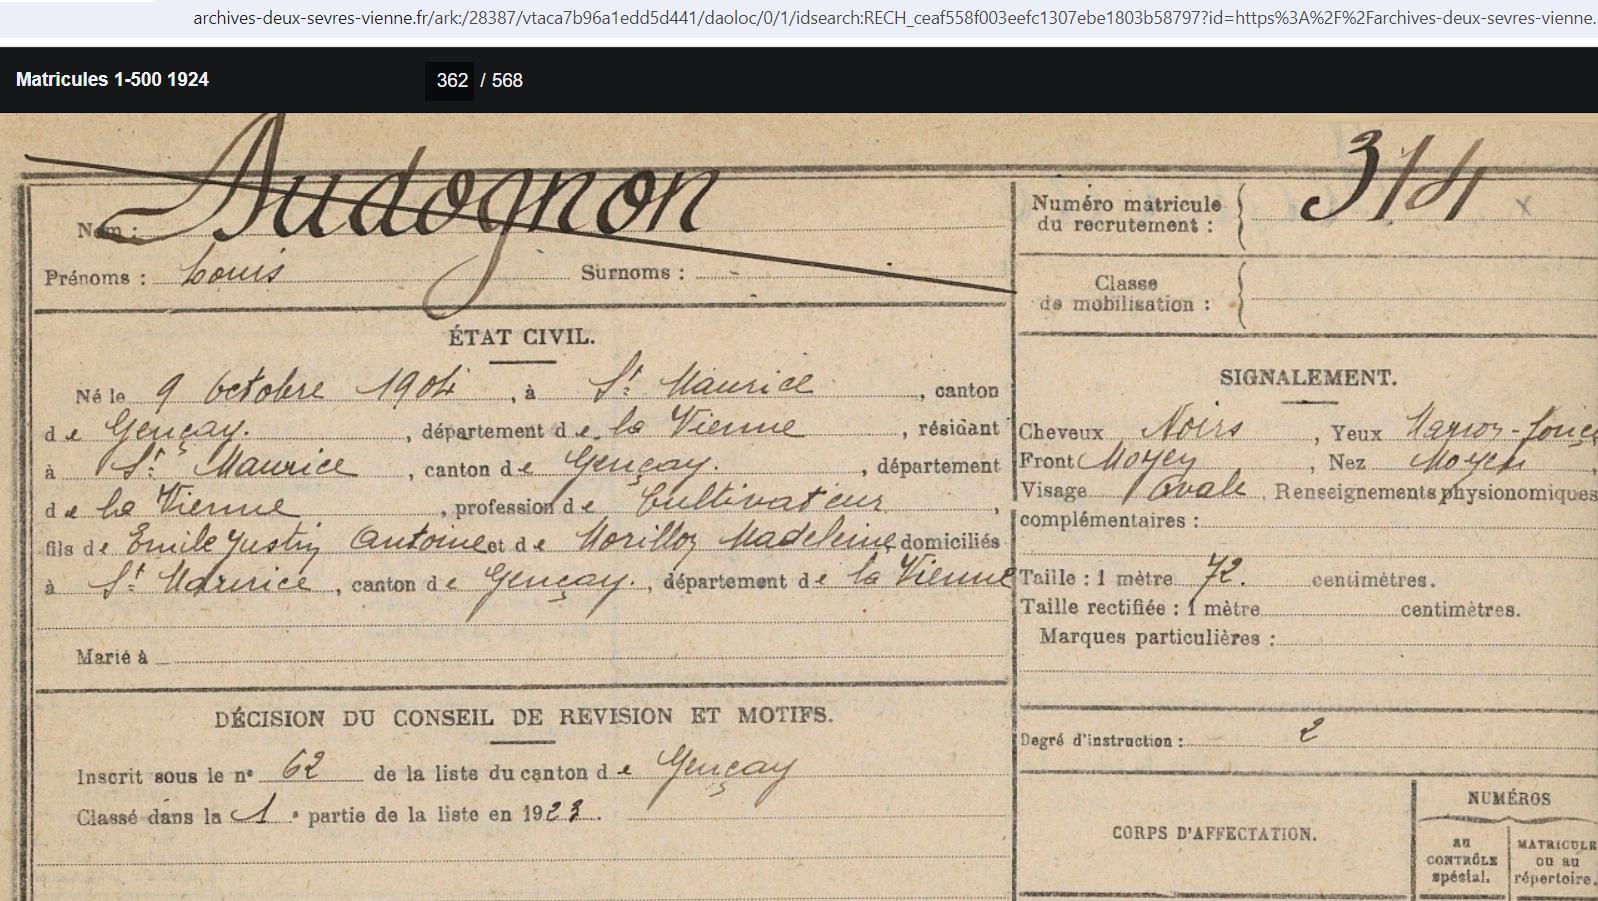 archives-deux-sevres-vienne.fr/ark:/28387/vtaca7b96a1edd5d441/daoloc/0/1/idsearch:RECH_ceaf558f003eefc1307ebe1803b58797?id=https%3A%2F%2Farchives-deux-sevres-vienne.
Matricules 1-500 1924 362 / 568
Nom : Audognon
Prénoms : Louis Surnoms :
ÉTAT CIVIL.
Né le 9 Octobre 1904, à St Maurice, canton
de Gençay., département de la Vienne, résidant
à St Maurice, canton de Gençay., département
de la Vienne, profession de Cultivateur,
fils de Emile Justin Antoine et de Morillon Madeleine domiciliés
à St Maurice, canton de Gençay., département de la Vienne
Marié à
DÉCISION DU CONSEIL DE REVISION ET MOTIFS.
Inscrit sous le n° 62 de la liste du canton de Gençay
Classé dans la 1e partie de la liste en 1923.
Numéro matricule du recrutement : 314
Classe de mobilisation :
SIGNALEMENT.
Cheveux Noirs, Yeux Marron-foncé
Front Moyen, Nez Moyen,
Visage Ovale. Renseignements physionomiques
complémentaires :
Taille : 1 mètre 72. centimètres.
Taille rectifiée : 1 mètre centimètres.
Marques particulières :
Degré d'instruction : 2
CORPS D'AFFECTATION.
NUMÉROS
au CONTRÔLE spécial.
MATRICULE ou au répertoire.